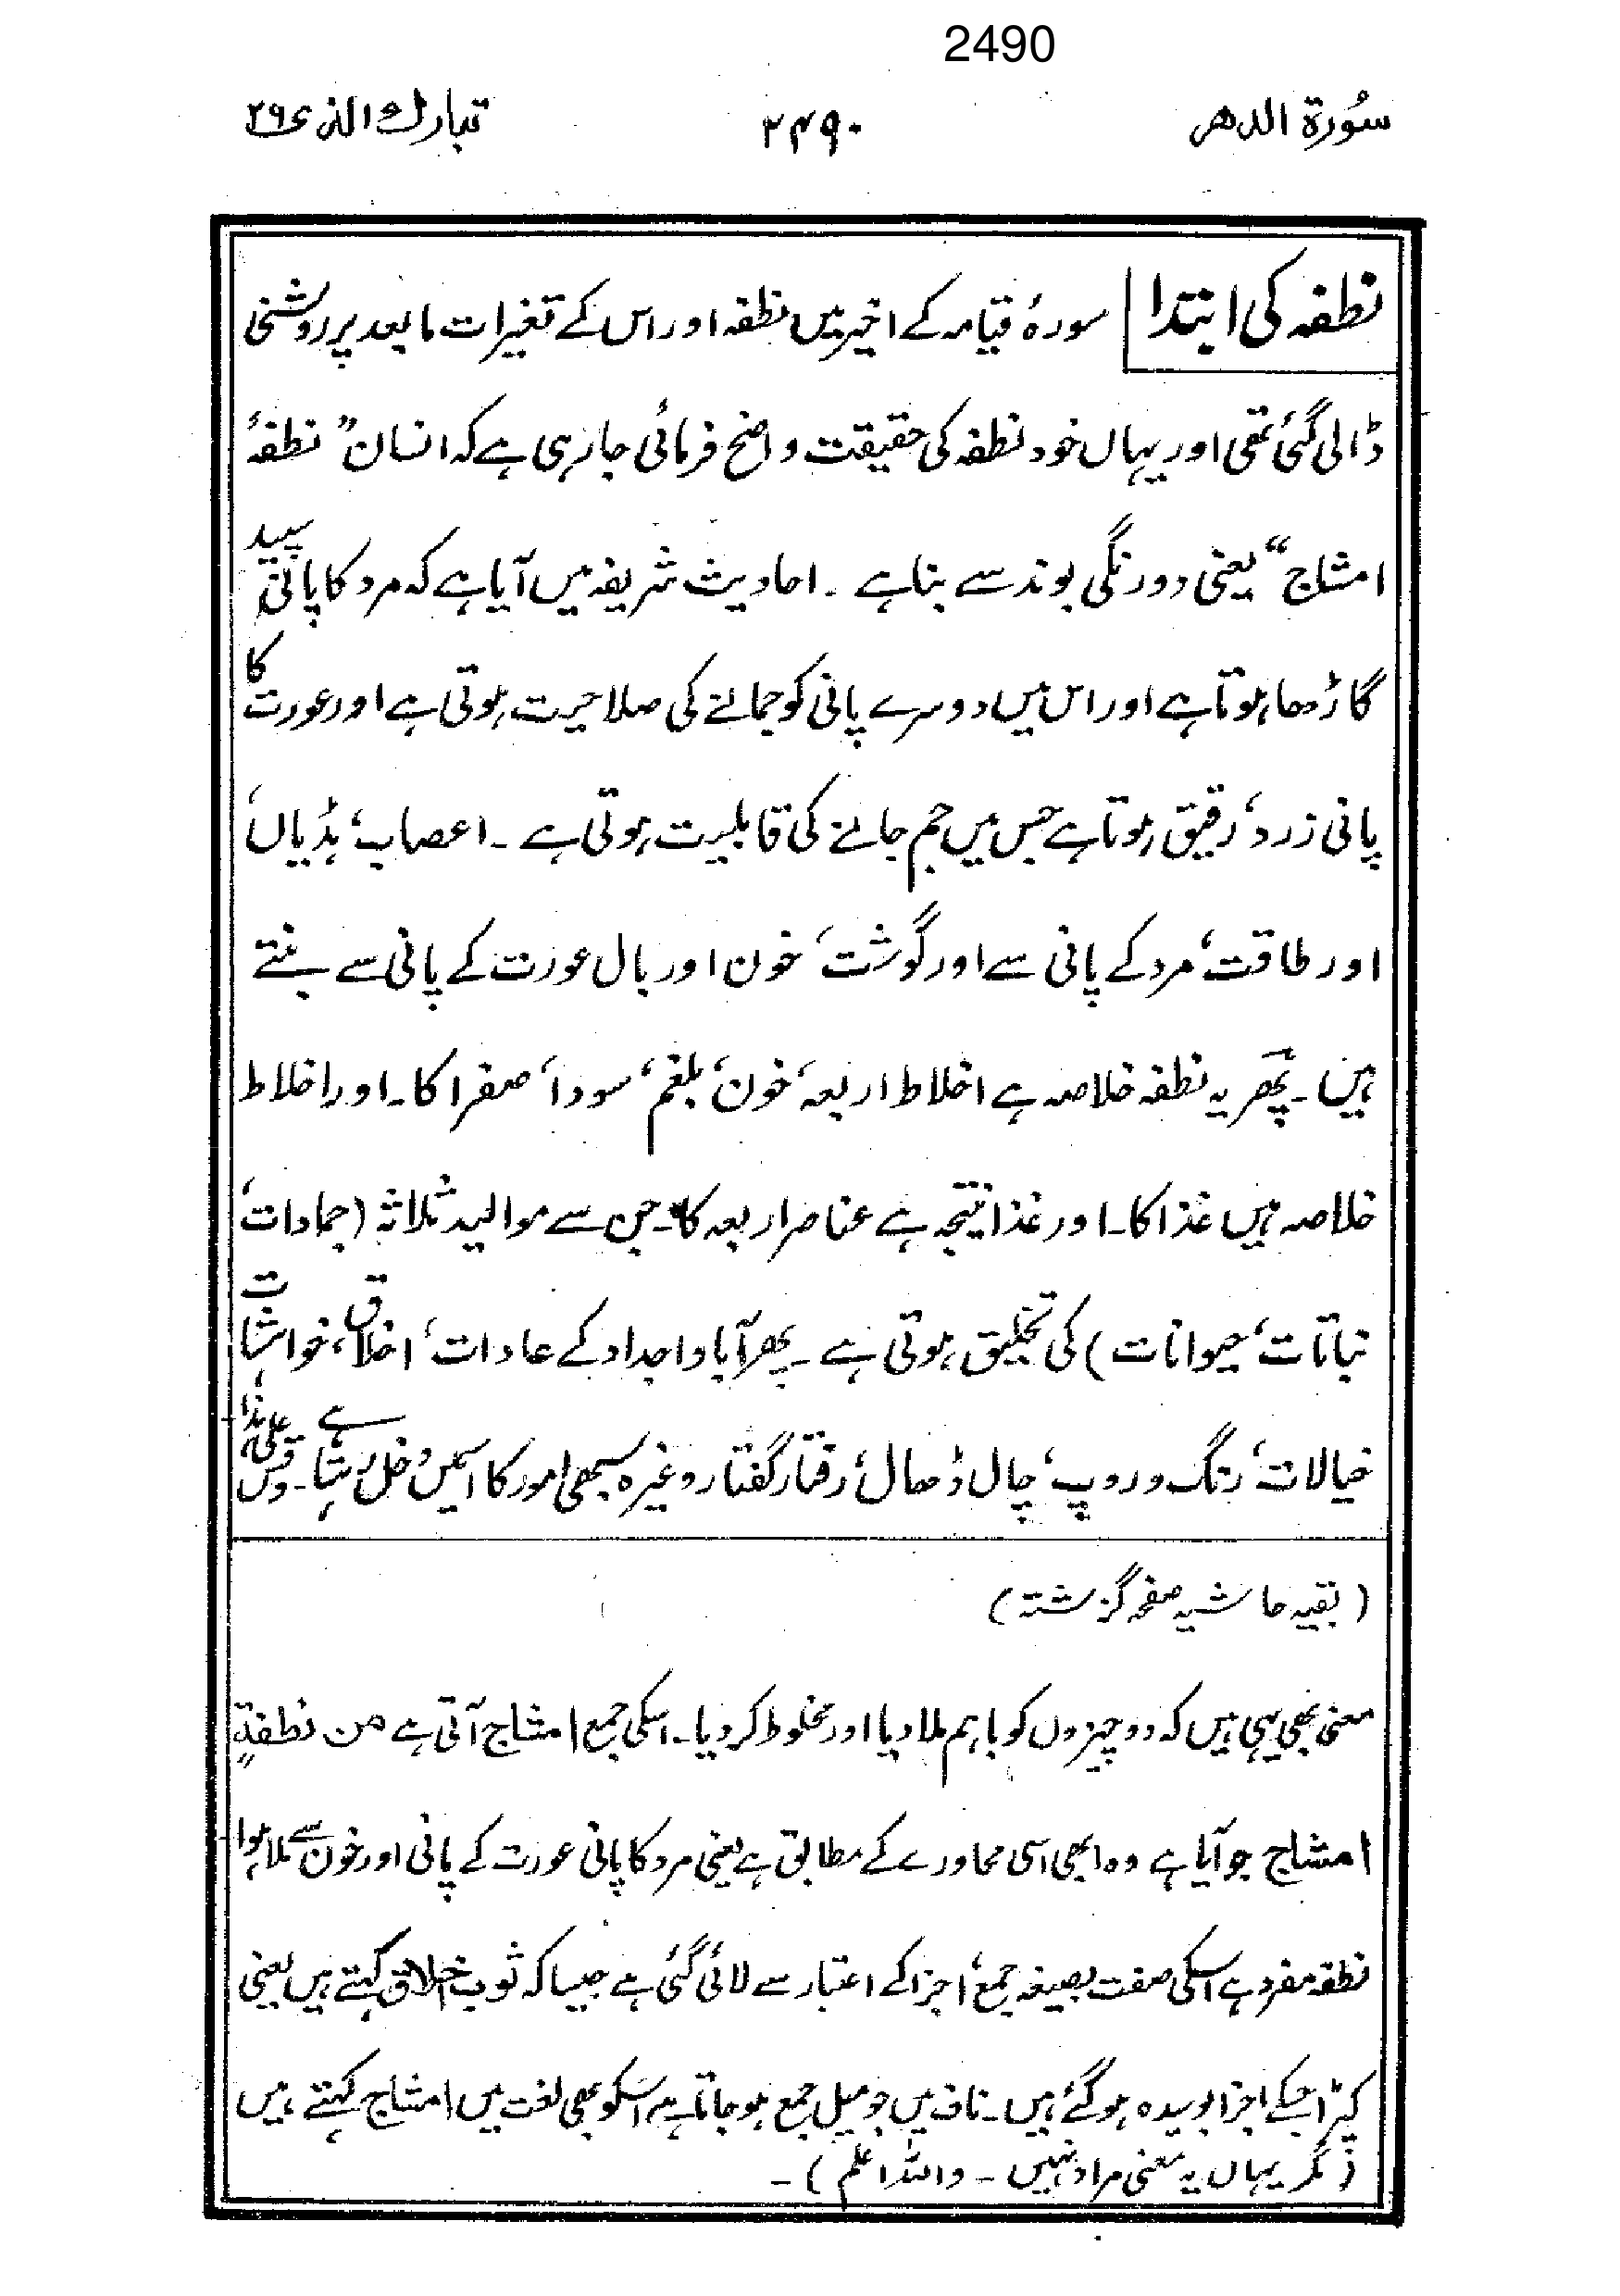 2490
سُورة الدھر ۲۴۹۰ تبارك الذى ۲۹
نطفہ کی ابتدا سورۂ قیامہ کے اخیر میں نطفہ اور اس کے تغیرات ما بعد پر روشنی
ڈالی گئی تھی اور یہاں خود نطفہ کی حقیقت واضح فرمائی جا رہی ہے کہ انسان ”نطفۂ
امشاج“ یعنی دو رنگی بوند سے بنا ہے ۔ احادیث شریفہ میں آیا ہے کہ مرد کا پانی سپید
گاڑھا ہوتا ہے اور اس میں دوسرے پانی کو جمانے کی صلاحیت ہوتی ہے اور عورت کا
پانی زرد، رقیق ہوتا ہے جس میں جم جانے کی قابلیت ہوتی ہے ۔ اعصاب، ہڈیاں،
اور طاقت، مرد کے پانی سے اور گوشت، خون اور بال عورت کے پانی سے بنتے
ہیں ۔ پھر یہ نطفہ خلاصہ ہے اخلاط اربعہ، خون، بلغم، سودا، صفرا کا ۔ اور اخلاط
خلاصہ ہیں غذا کا ۔ اور غذا نتیجہ ہے عناصر اربعہ کا ۔ جن سے موالید ثلاثہ (جمادات،
نباتات، حیوانات) کی تخلیق ہوتی ہے ۔ پھر آبا و اجداد کے عادات، اخلاق، خواہشات
خیالات، رنگ و روپ، چال ڈھال، رفتار گفتار وغیرہ سبھی امور کا اسمیں دخل رہتا ہے ۔ وقس علی ہذا
(بقیہ حاشیہ صفحہ گزشتہ)
معنی بھی یہی ہیں کہ دو چیزوں کو باہم ملا دیا اور مخلوط کر دیا ۔ اسکی جمع امشاج آتی ہے من نطفةٍ
امشاج جو آیا ہے وہ ابھی اسی محاورے کے مطابق ہے یعنی مرد کا پانی عورت کے پانی اور خون سے ملا ہوا
نطفہ مفرد ہے اسکی صفت بصیغہ جمع، اجزا کے اعتبار سے لائی گئی ہے جیسا کہ ثوب اخلاق کہتے ہیں یعنی
کپڑا جسکے اجزا بوسیدہ ہو گئے ہیں ۔ ناف میں جو میل جمع ہو جاتا ہے اسکو بھی لغت میں امشاج کہتے ہیں
(مگر یہاں یہ معنی مراد نہیں ۔ واللہ اعلم) ۔